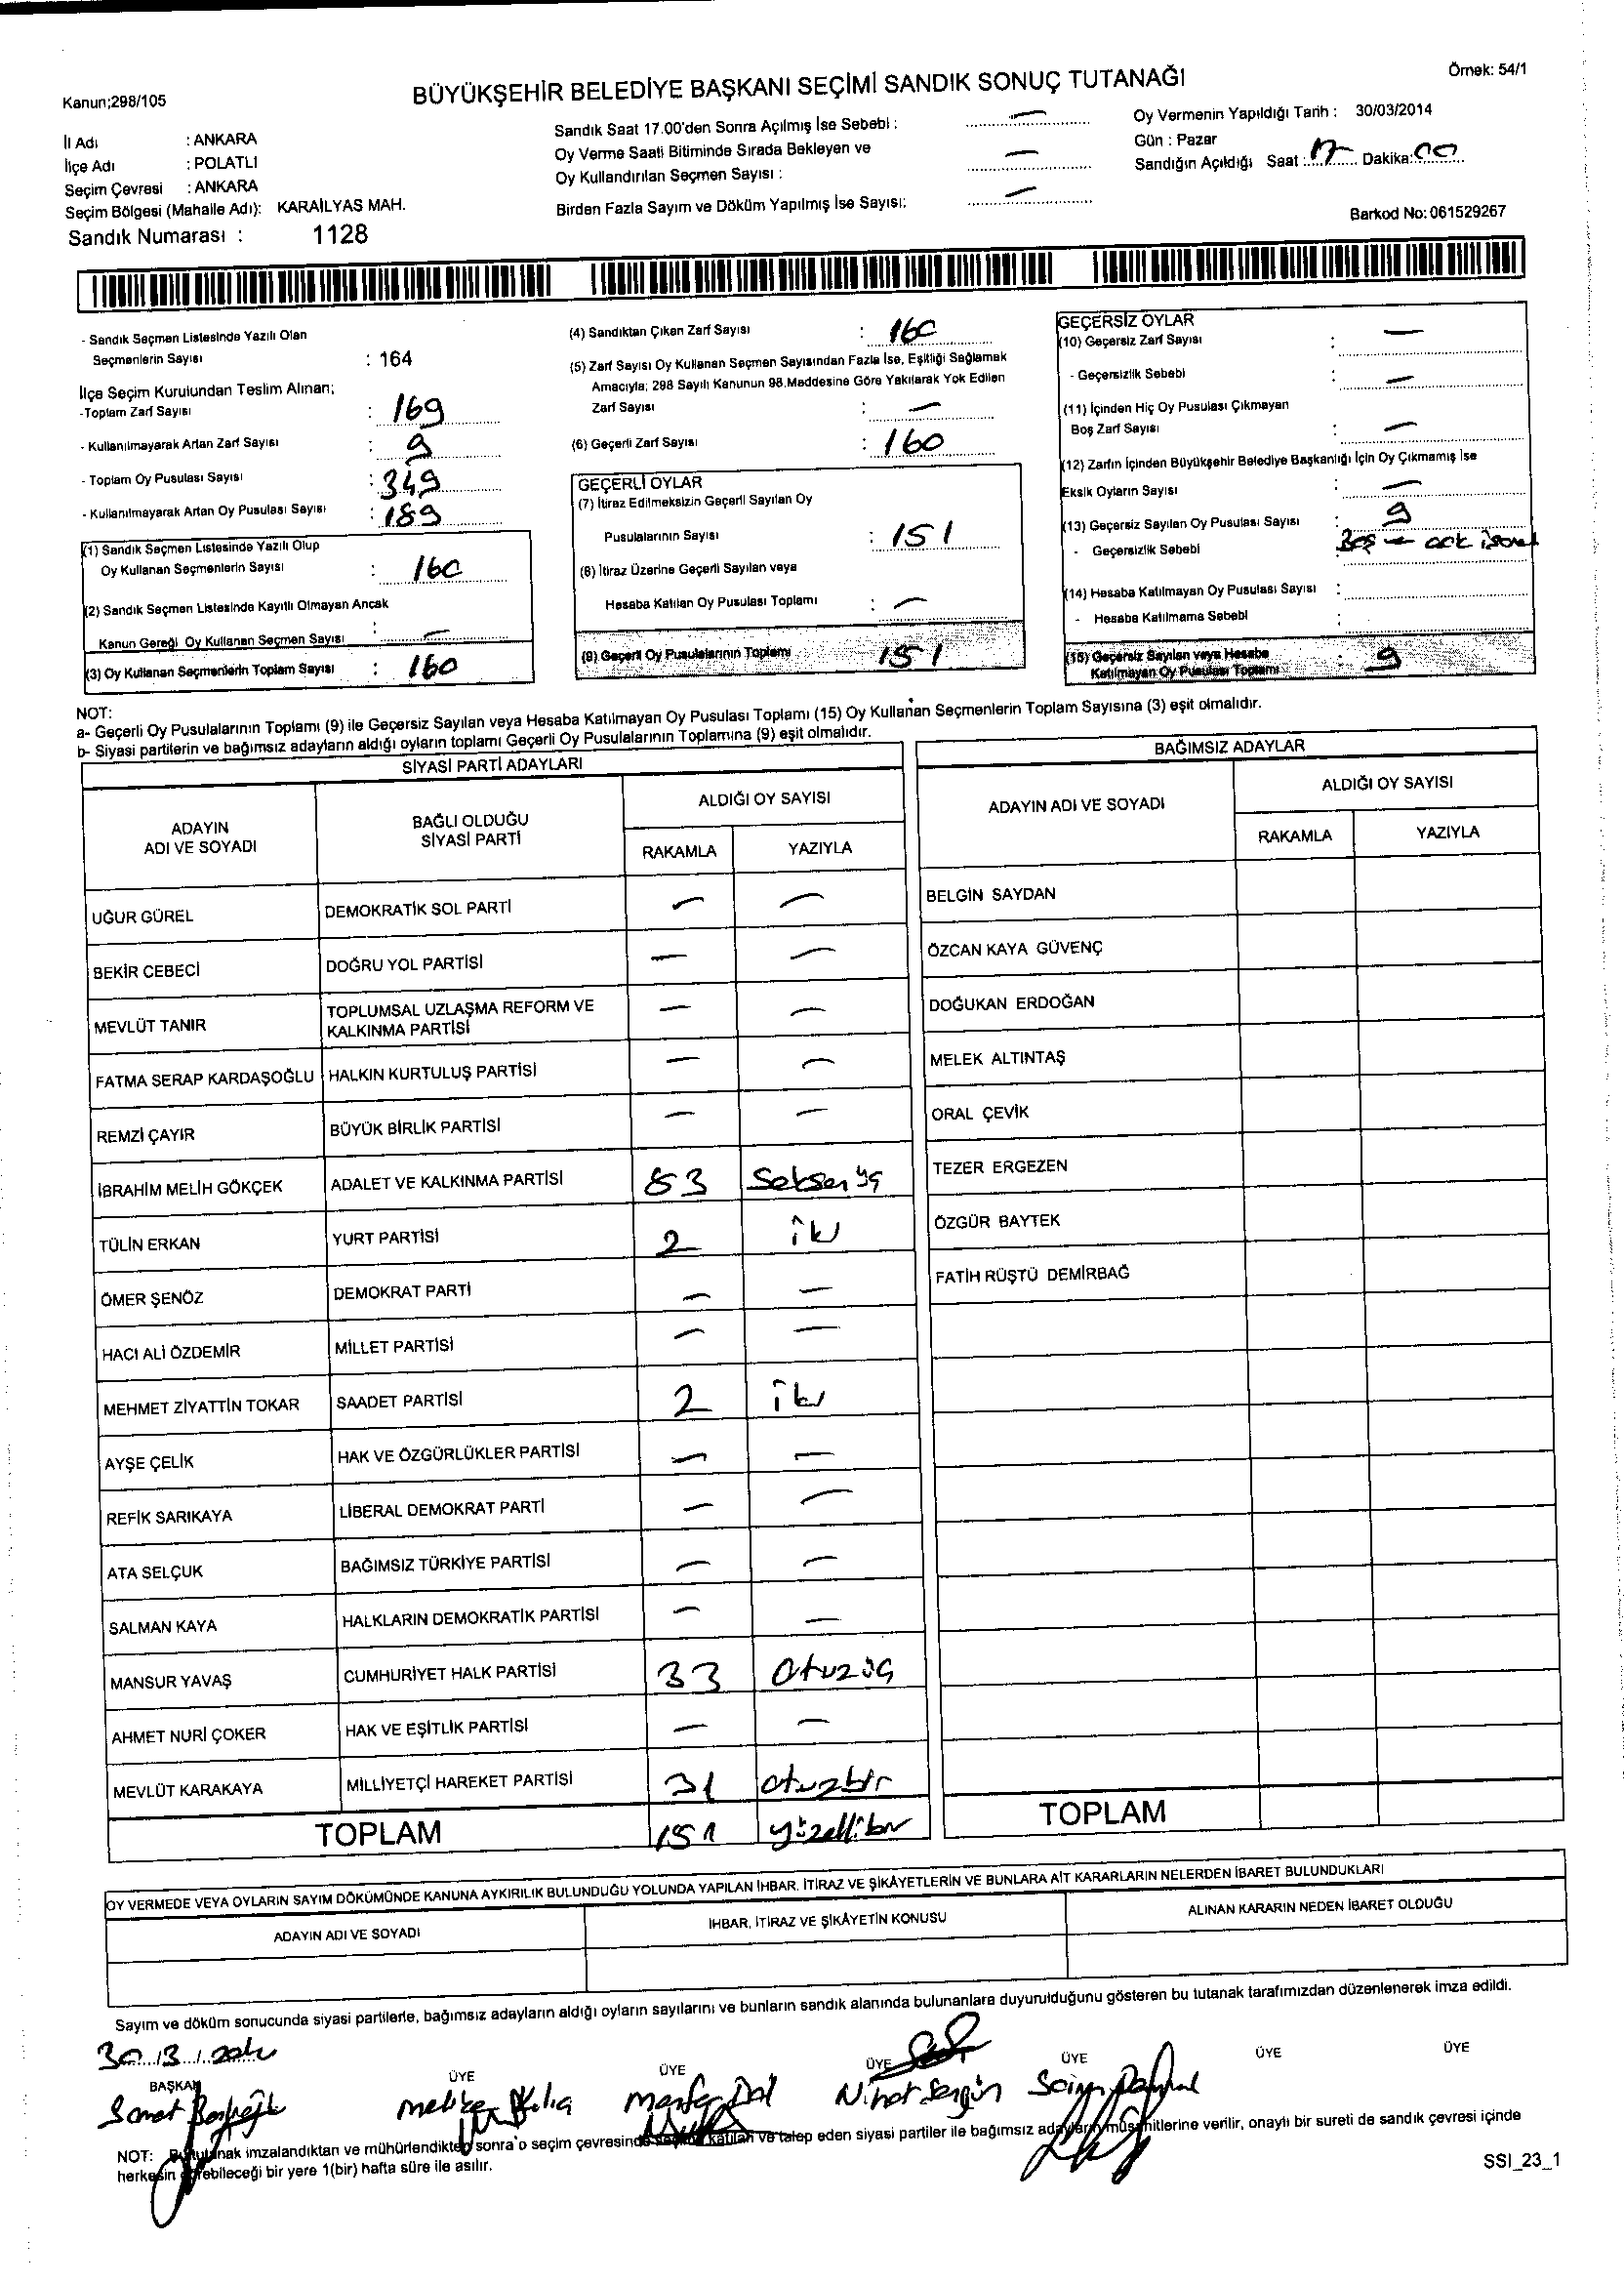 Örnek: 54/1
Kanun;298/105
BÜYÜKŞEHİR BELEDİYE BAŞKANI SEÇİMİ SANDIK SONUÇ TUTANAĞI
İl Adı : ANKARA
İlçe Adı : POLATLI
Seçim Çevresi : ANKARA
Seçim Bölgesi (Mahalle Adı): KARAİLYAS MAH.
Sandık Numarası : 1128
Sandık Saat 17.00'den Sonra Açılmış İse Sebebi : —
Oy Verme Saati Bitiminde Sırada Bekleyen ve
Oy Kullandırılan Seçmen Sayısı : —
Birden Fazla Sayım ve Döküm Yapılmış İse Sayısı: —
Oy Vermenin Yapıldığı Tarih : 30/03/2014
Gün : Pazar
Sandığın Açıldığı Saat : 17 Dakika: 00
Barkod No: 061529267
- Sandık Seçmen Listesinde Yazılı Olan
Seçmenlerin Sayısı : 164
İlçe Seçim Kurulundan Teslim Alınan;
-Toplam Zarf Sayısı : 169
- Kullanılmayarak Artan Zarf Sayısı : 9
- Toplam Oy Pusulası Sayısı : 349
- Kullanılmayarak Artan Oy Pusulası Sayısı : 189
(1) Sandık Seçmen Listesinde Yazılı Olup
Oy Kullanan Seçmenlerin Sayısı : 160
(2) Sandık Seçmen Listesinde Kayıtlı Olmayan Ancak
Kanun Gereği Oy Kullanan Seçmen Sayısı : —
(3) Oy Kullanan Seçmenlerin Toplam Sayısı : 160
(4) Sandıktan Çıkan Zarf Sayısı : 160
(5) Zarf Sayısı Oy Kullanan Seçmen Sayısından Fazla İse, Eşitliği Sağlamak
Amacıyla; 298 Sayılı Kanunun 98.Maddesine Göre Yakılarak Yok Edilen
Zarf Sayısı : —
(6) Geçerli Zarf Sayısı : 160
GEÇERLİ OYLAR
(7) İtiraz Edilmeksizin Geçerli Sayılan Oy
Pusulalarının Sayısı : 151
(8) İtiraz Üzerine Geçerli Sayılan veya
Hesaba Katılan Oy Pusulası Toplamı : —
(9) Geçerli Oy Pusulalarının Toplamı 151
GEÇERSİZ OYLAR
(10) Geçersiz Zarf Sayısı : —
- Geçersizlik Sebebi : —
(11) İçinden Hiç Oy Pusulası Çıkmayan
Boş Zarf Sayısı : —
(12) Zarfın İçinden Büyükşehir Belediye Başkanlığı İçin Oy Çıkmamış İse
Eksik Oyların Sayısı : —
(13) Geçersiz Sayılan Oy Pusulası Sayısı : 9
- Geçersizlik Sebebi Boş
(14) Hesaba Katılmayan Oy Pusulası Sayısı :
- Hesaba Katılmama Sebebi :
(15) Geçersiz Sayılan veya Hesaba
Katılmayan Oy Pusulası Toplamı : 9
NOT:
a- Geçerli Oy Pusulalarının Toplamı (9) ile Geçersiz Sayılan veya Hesaba Katılmayan Oy Pusulası Toplamı (15) Oy Kullanan Seçmenlerin Toplam Sayısına (3) eşit olmalıdır.
b- Siyasi partilerin ve bağımsız adayların aldığı oyların toplamı Geçerli Oy Pusulalarının Toplamına (9) eşit olmalıdır.
SİYASİ PARTİ ADAYLARI
ADAYIN
ADI VE SOYADI
BAĞLI OLDUĞU
SİYASİ PARTİ
ALDIĞI OY SAYISI
RAKAMLA YAZIYLA
UĞUR GÜREL DEMOKRATİK SOL PARTİ — —
BEKİR CEBECİ DOĞRU YOL PARTİSİ — —
MEVLÜT TANIR TOPLUMSAL UZLAŞMA REFORM VE
KALKINMA PARTİSİ — —
FATMA SERAP KARDAŞOĞLU HALKIN KURTULUŞ PARTİSİ — —
REMZİ ÇAYIR BÜYÜK BİRLİK PARTİSİ — —
İBRAHİM MELİH GÖKÇEK ADALET VE KALKINMA PARTİSİ 83 Seksenüç
TÜLİN ERKAN YURT PARTİSİ 2 iki
ÖMER ŞENÖZ DEMOKRAT PARTİ — —
HACI ALİ ÖZDEMİR MİLLET PARTİSİ — —
MEHMET ZİYATTİN TOKAR SAADET PARTİSİ 2 iki
AYŞE ÇELİK HAK VE ÖZGÜRLÜKLER PARTİSİ — —
REFİK SARIKAYA LİBERAL DEMOKRAT PARTİ — —
ATA SELÇUK BAĞIMSIZ TÜRKİYE PARTİSİ — —
SALMAN KAYA HALKLARIN DEMOKRATİK PARTİSİ — —
MANSUR YAVAŞ CUMHURİYET HALK PARTİSİ 33 Otuzüç
AHMET NURİ ÇOKER HAK VE EŞİTLİK PARTİSİ — —
MEVLÜT KARAKAYA MİLLİYETÇİ HAREKET PARTİSİ 31 otuzbir
TOPLAM 151 yüzellibir
BAĞIMSIZ ADAYLAR
ADAYIN ADI VE SOYADI
ALDIĞI OY SAYISI
RAKAMLA YAZIYLA
BELGİN SAYDAN
ÖZCAN KAYA GÜVENÇ
DOĞUKAN ERDOĞAN
MELEK ALTINTAŞ
ORAL ÇEVİK
TEZER ERGEZEN
ÖZGÜR BAYTEK
FATİH RÜŞTÜ DEMİRBAĞ
TOPLAM
OY VERMEDE VEYA OYLARIN SAYIM DÖKÜMÜNDE KANUNA AYKIRILIK BULUNDUĞU YOLUNDA YAPILAN İHBAR, İTİRAZ VE ŞİKÂYETLERİN VE BUNLARA AİT KARARLARIN NELERDEN İBARET BULUNDUKLARI
ADAYIN ADI VE SOYADI
İHBAR, İTİRAZ VE ŞİKÂYETİN KONUSU
ALINAN KARARIN NEDEN İBARET OLDUĞU
Sayım ve döküm sonucunda siyasi partilerle, bağımsız adayların aldığı oyların sayılarını ve bunların sandık alanında bulunanlara duyurulduğunu gösteren bu tutanak tarafımızdan düzenlenerek imza edildi.
30/3/2014
BAŞKAN ÜYE ÜYE ÜYE ÜYE ÜYE ÜYE
Nihat Sergün
NOT: Bu tutanak imzalandıktan ve mühürlendikten sonra o seçim çevresinde seçime katılan ve talep eden siyasi partiler ile bağımsız adayların müşahitlerine verilir, onaylı bir sureti de sandık çevresi içinde
herkesin görebileceği bir yere 1(bir) hafta süre ile asılır.
SSI_23_1